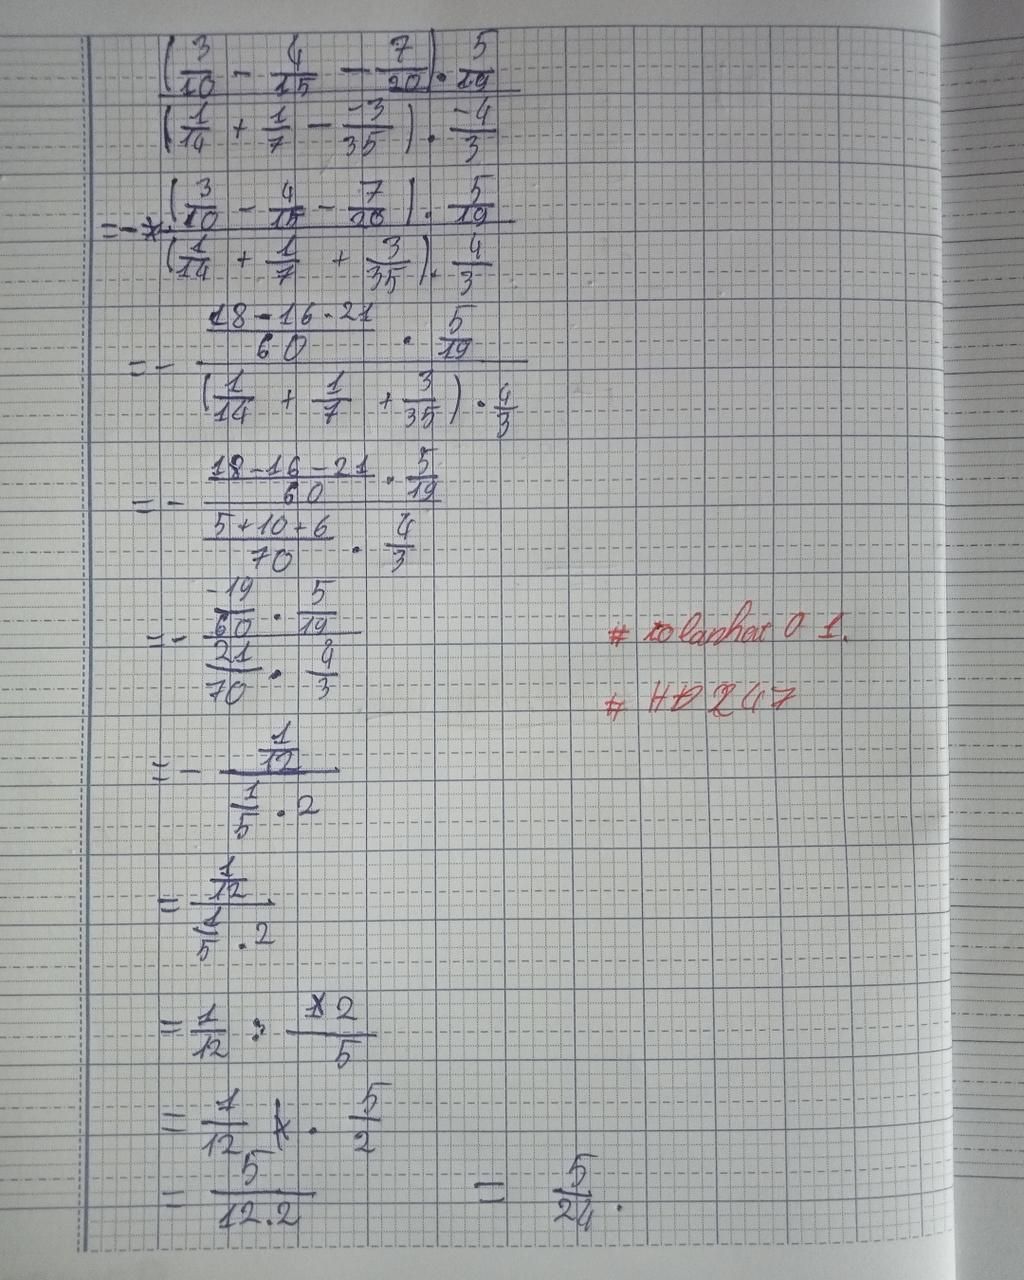 (3/10 - 4/15 - 7/20) . 5/19
(1/14 + 1/7 - -3/35) . -4/3
= - (3/10 - 4/15 - 7/20) . 5/19
(1/14 + 1/7 + 3/35) . 4/3
= - 18 - 16 - 21/60 . 5/19
(1/14 + 1/7 + 3/35) . 4/3
= - 18 - 16 - 21/60 . 5/19
5 + 10 + 6/70 . 4/3
= - -19/60 . 5/19
21/70 . 4/3
= - 1/12
1/5 . 2
= 1/12
1/5 . 2
= 1/12 : 2/5
= 1/12 . 5/2
= 5/12.2 = 5/24.
# 01.
# HD247